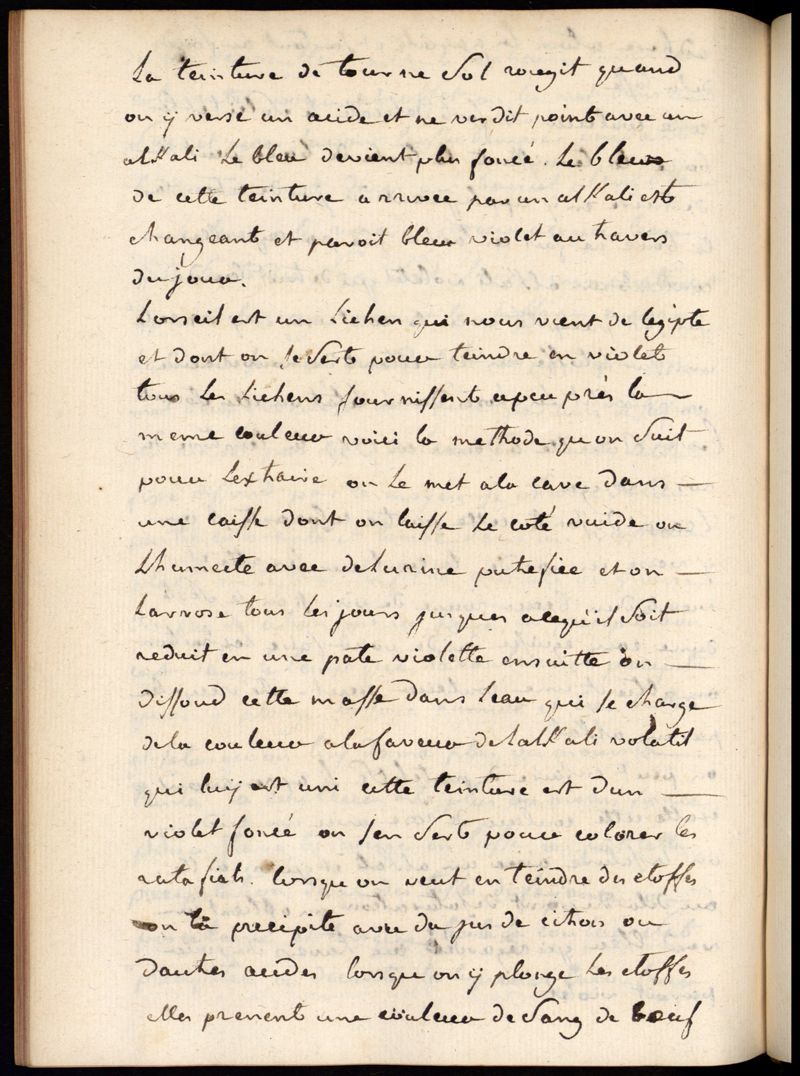 La teinture de tourne Sol rougit quand
on ÿ verse un acide et ne verdit point avec un
alKali Le bleu devient plus foncé. Le bleu
de cette teinture avivee par un alKali est
changeant et paroit bleu violet au travers
du jour.
Lorseil est un Lichen qui nous vient de legipte
et dont on se Sert pour teindre en violet
tous Les Lichens fournissent apeu près la
meme couleur voici la methode quon Suit
pour Lextraire on Le met ala cave dans
une caisse dont on laisse Le coté vuide on
Lhumecte avec de Lurine putrefiée et on
Larrose tous les jours jusques acequil Soit
reduit en une pate violette ensuitte on
dissoud cette masse dans leau qui se charge
dela couleur ala faveur de lalKali volatil
qui luÿ est uni cette teinture est dun
violet foncé on sen Sert pour colorer les
ratafiats. lorsque on veut en teindre des etoffes
on la precipite avec du jus de citron ou
dautres acides lorsque on ÿ plonge Les etoffes
elles prenent une couleur de Sang de boeuf